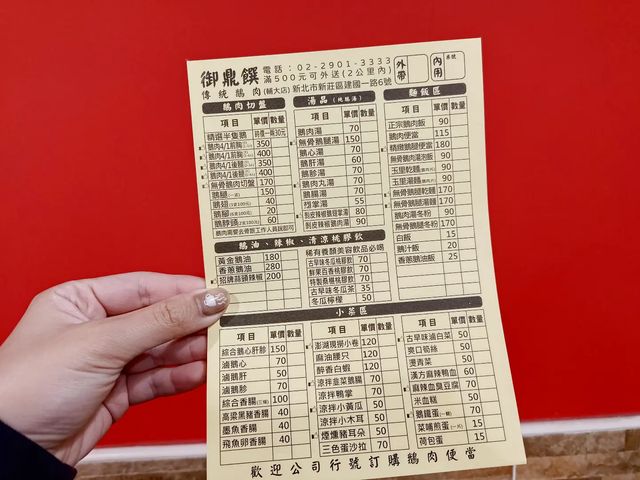 御鼎饌
電話：02-2901-3333
滿500元可外送(2公里內)
傳統鵝肉(輔大店) 新北市新莊區建國一路6號
外帶
內用
桌號
鵝肉切盤
項目 單價 數量
精選半隻鵝 時價一兩30元
鵝肉1/4前胸 350
鵝肉1/4前胸 400
鵝肉1/4後腿 350
鵝肉1/4後腿 400
無骨鵝肉切盤 170
鵝腿 150
鵝翅 40
鵝腳 20
鵝脖頭 60
湯品
項目 單價 數量
鵝肉湯 70
無骨鵝腿湯 150
鵝心湯 70
鵝肝湯 60
鵝胗湯 70
鵝肉丸湯 70
鵝腸湯 70
剝皮辣椒鵝翅當湯 80
剝皮辣椒鵝肉湯 90
麵飯區
項目 單價 數量
正宗鵝肉飯 90
鵝肉便當 115
精緻鵝腿便當 180
無骨鵝肉湯泡飯 90
玉里乾麵 90
玉里湯麵 90
無骨鵝腿乾麵 170
無骨鵝腿湯麵 170
鵝肉湯冬粉 90
無骨鵝腿冬粉 170
白飯 15
鵝汁飯 20
香蔥鵝油飯 25
鵝油、辣椒、清涼桃膠飲
黃金鵝油 180
香蔥鵝油 280
招牌蒜頭辣椒 200
稀有養顏美容飲品必喝
古早味冬瓜桃膠飲 70
鮮果百香桃膠飲 70
特製桑椹桃膠飲 70
古早味冬瓜茶 35
冬瓜檸檬 50
小菜區
項目 單價 數量
綜合鵝心肝胗 150
滷鵝心 70
滷鵝肝 50
滷鵝胗 70
綜合香腸 100
高粱黑豬香腸 40
墨魚香腸 40
飛魚卵香腸 40
項目 單價 數量
澎湖現撈小卷 120
麻油腰只 120
醉香白蝦 120
涼拌韭菜鵝腸 70
涼拌鴨掌 70
涼拌小黃瓜 50
涼拌小木耳 50
煙燻豬耳朵 50
三色蛋沙拉 70
項目 單價 數量
古早味滷白菜 50
爽口筍絲 50
燙青菜 50
漢方麻辣鴨血 60
麻辣臭豆腐 70
米血糕 50
鵝鐵蛋 70
菜脯煎蛋 15
荷包蛋 15
歡迎公司行號訂購鵝肉便當